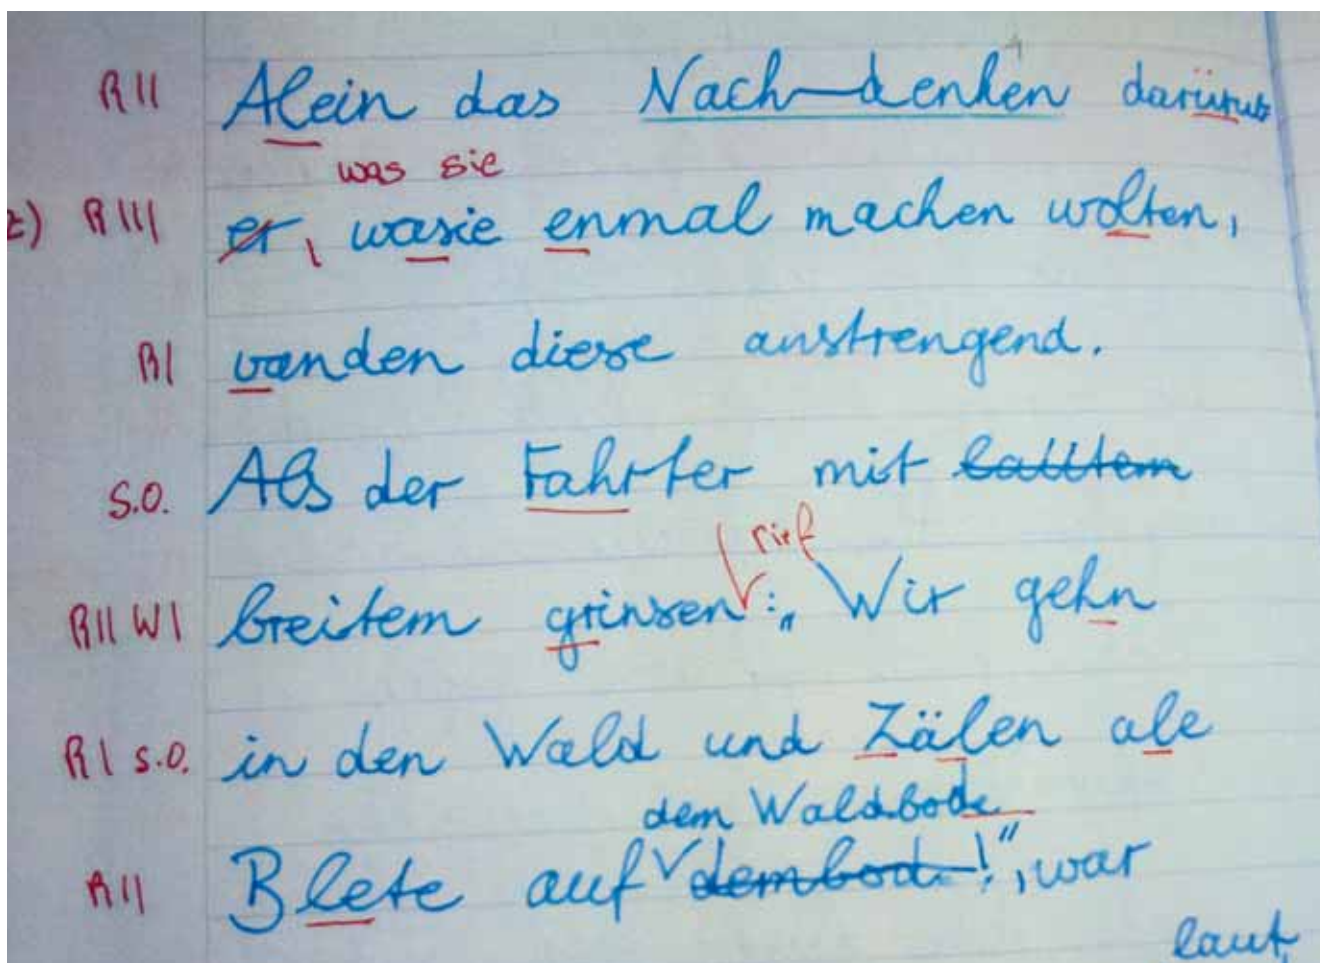 R II Alein das Nach-denken darü
was sie
R III er, wasie enmal machen wolten,
R I vanden diese anstrengend.
s.o. Als der Fahrter mit
rief
R II W I breitem grinsen: „Wir gehn
R I s.o. in den Wald und Zälen ale
dem Waldbode
R II Blete auf dembod!", war
laut,